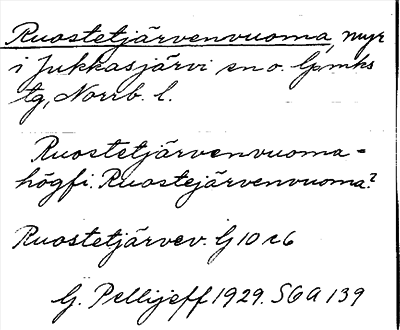 Ruostetjärvenvuoma, myr
i Jukkasjärvi sn o. lpmks
tg, Norrb. l.
Ruostetjärvenvuoma =
högfi. Ruostejärvenvuoma?
Ruostetjärvev. G 10 c 6
G. Pellijeff 1929. SGA 139